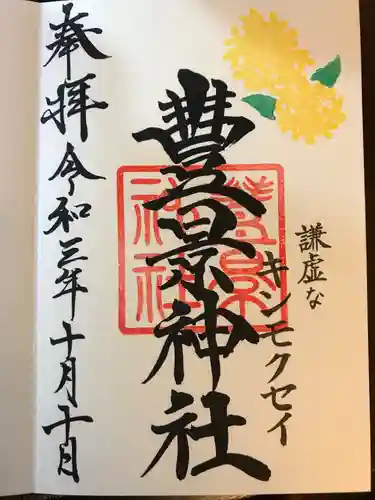 謙虚な
キンモクセイ
豊景神社
豊景神社
奉拝 令和三年十月十日